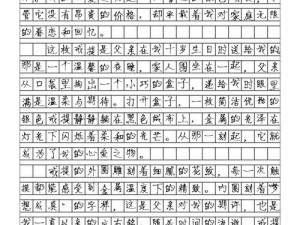 管它没有昂贵的价格，却承载着我对家庭无限
的眷恋和回忆。
这枚戒指是父亲在我十岁生日时送给我的
那是一个温馨的夜晚，家人围坐在一起，父亲
从口袋里掏出一个小巧的盒子，递给我时眼里
满是温柔与期待。打开盒子，一枚简洁优雅的
银色戒指静静躺在黑色绒布上，金属的光泽在
灯光下闪烁着柔和的光芒。从那一刻起，它就
成为了我的心爱之物。
戒指的外圈雕刻着细腻的花纹，每一次触
摸都能感受到金属温度下的精致。内圈刻着“梦
想成真”的字样，这是父亲对我的期许，也是